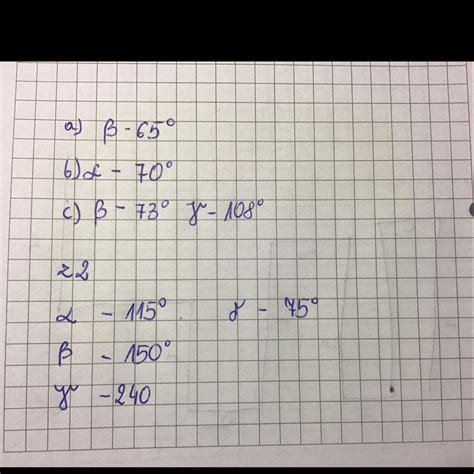 a) β - 65°
b) α - 70°
c) β - 73° γ - 108°
z2
α - 115° γ - 75°
β - 150°
γ - 240